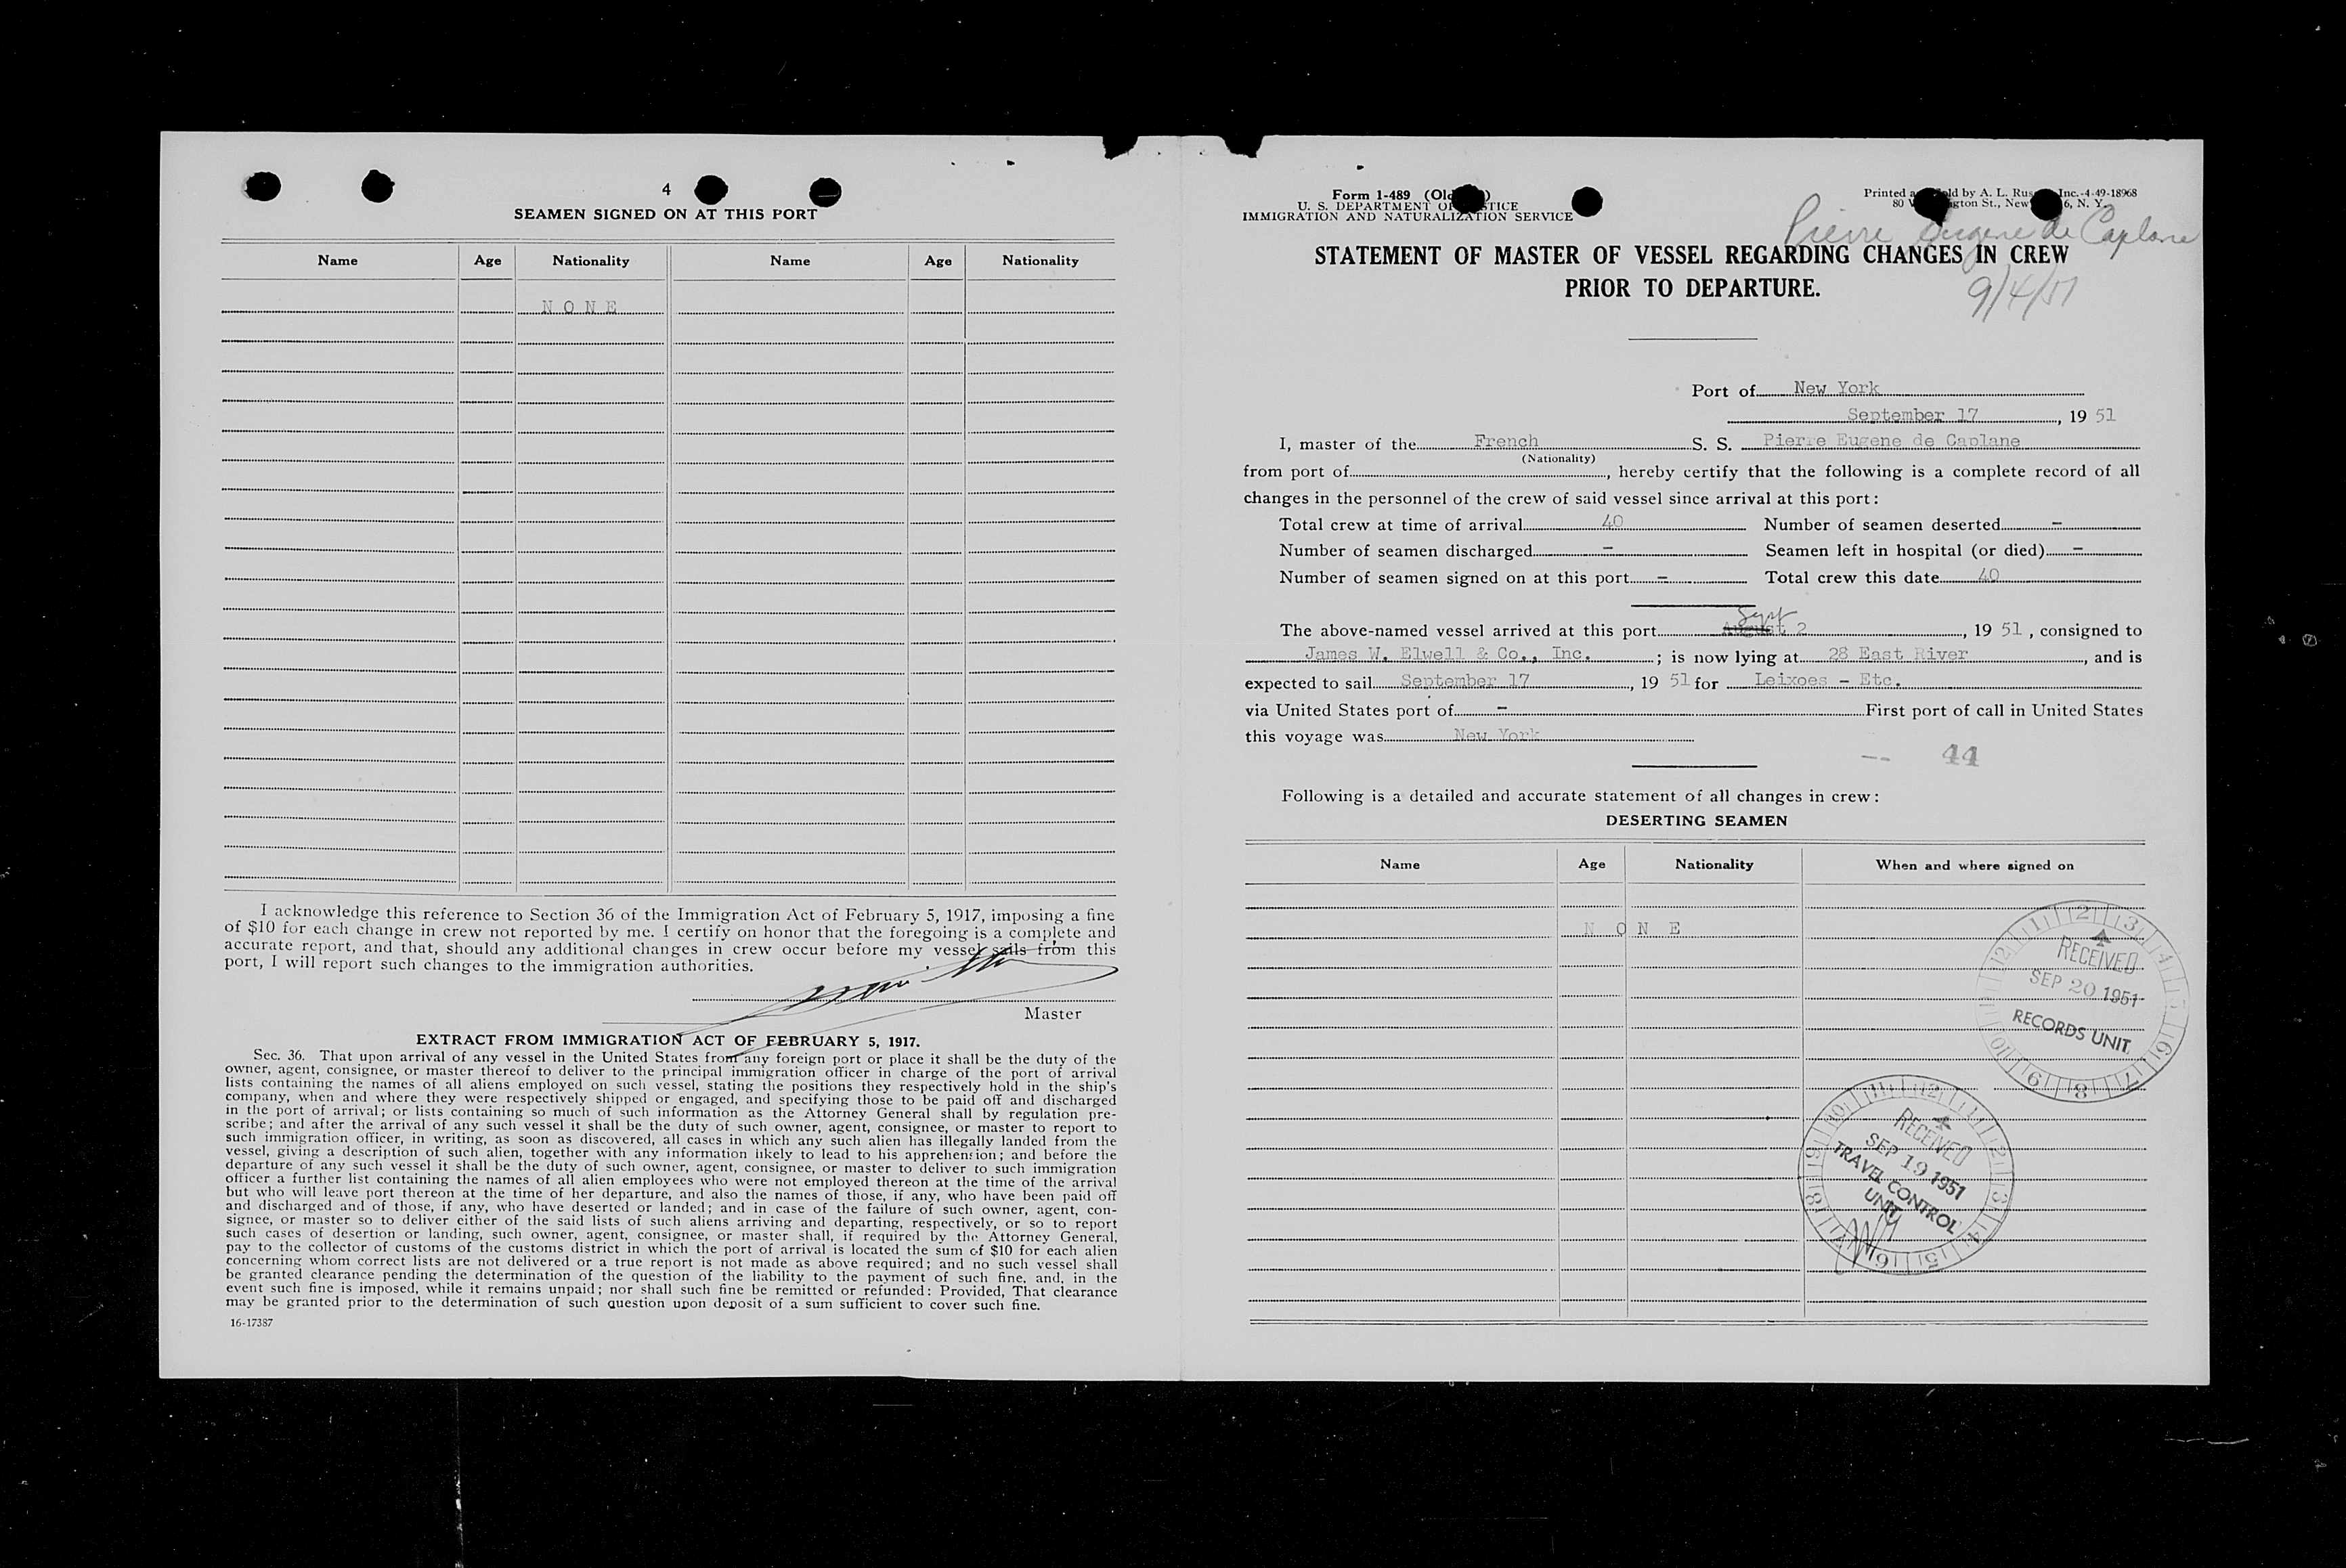 4
SEAMEN SIGNED ON AT THIS PORT
Name Age Nationality Name Age Nationality
NONE
I acknowledge this reference to Section 36 of the Immigration Act of February 5, 1917, imposing a fine
of $10 for each change in crew not reported by me. I certify on honor that the foregoing is a complete and
accurate report, and that, should any additional changes in crew occur before my vessel sails from this
port, I will report such changes to the immigration authorities.
Master
EXTRACT FROM IMMIGRATION ACT OF FEBRUARY 5, 1917.
Sec. 36. That upon arrival of any vessel in the United States from any foreign port or place it shall be the duty of the
owner, agent, consignee, or master thereof to deliver to the principal immigration officer in charge of the port of arrival
lists containing the names of all aliens employed on such vessel, stating the positions they respectively hold in the ship's
company, when and where they were respectively shipped or engaged, and specifying those to be paid off and discharged
in the port of arrival; or lists containing so much of such information as the Attorney General shall by regulation pre-
scribe; and after the arrival of any such vessel it shall be the duty of such owner, agent, consignee, or master to report to
such immigration officer, in writing, as soon as discovered, all cases in which any such alien has illegally landed from the
vessel, giving a description of such alien, together with any information likely to lead to his apprehension; and before the
departure of any such vessel it shall be the duty of such owner, agent, consignee, or master to deliver to such immigration
officer a further list containing the names of all alien employees who were not employed thereon at the time of the arrival
but who will leave port thereon at the time of her departure, and also the names of those, if any, who have been paid off
and discharged and of those, if any, who have deserted or landed; and in case of the failure of such owner, agent, con-
signee, or master so to deliver either of the said lists of such aliens arriving and departing, respectively, or so to report
such cases of desertion or landing, such owner, agent, consignee, or master shall, if required by the Attorney General,
pay to the collector of customs of the customs district in which the port of arrival is located the sum of $10 for each alien
concerning whom correct lists are not delivered or a true report is not made as above required; and no such vessel shall
be granted clearance pending the determination of the question of the liability to the payment of such fine, and, in the
event such fine is imposed, while it remains unpaid; nor shall such fine be remitted or refunded: Provided, That clearance
may be granted prior to the determination of such question upon deposit of a sum sufficient to cover such fine.
16-17387
Form 1-489
U. S. DEPARTMENT OF JUSTICE
IMMIGRATION AND NATURALIZATION SERVICE
Printed and Sold by A. L. Inc.-4-49-18968
80 St., New 6, N. Y.
Pierre Eugene de Caplane
STATEMENT OF MASTER OF VESSEL REGARDING CHANGES IN CREW
PRIOR TO DEPARTURE.
9/4/51
Port of New York
September 17, 19 51
I, master of the French S. S. Pierre Eugene de Caplane
(Nationality)
from port of, hereby certify that the following is a complete record of all
changes in the personnel of the crew of said vessel since arrival at this port:
Total crew at time of arrival 40 Number of seamen deserted -
Number of seamen discharged - Seamen left in hospital (or died) -
Number of seamen signed on at this port - Total crew this date 40
Sept
The above-named vessel arrived at this port August 2, 19 51, consigned to
James W. Elwell & Co., Inc.; is now lying at 28 East River, and is
expected to sail September 17, 19 51 for Leixoes - Etc.
via United States port of - First port of call in United States
this voyage was New York
-- 44
Following is a detailed and accurate statement of all changes in crew:
DESERTING SEAMEN
Name Age Nationality When and where signed on
NONE
RECEIVED
SEP 20 1951
RECORDS UNIT
RECEIVED
SEP 19 1951
TRAVEL CONTROL
UNIT